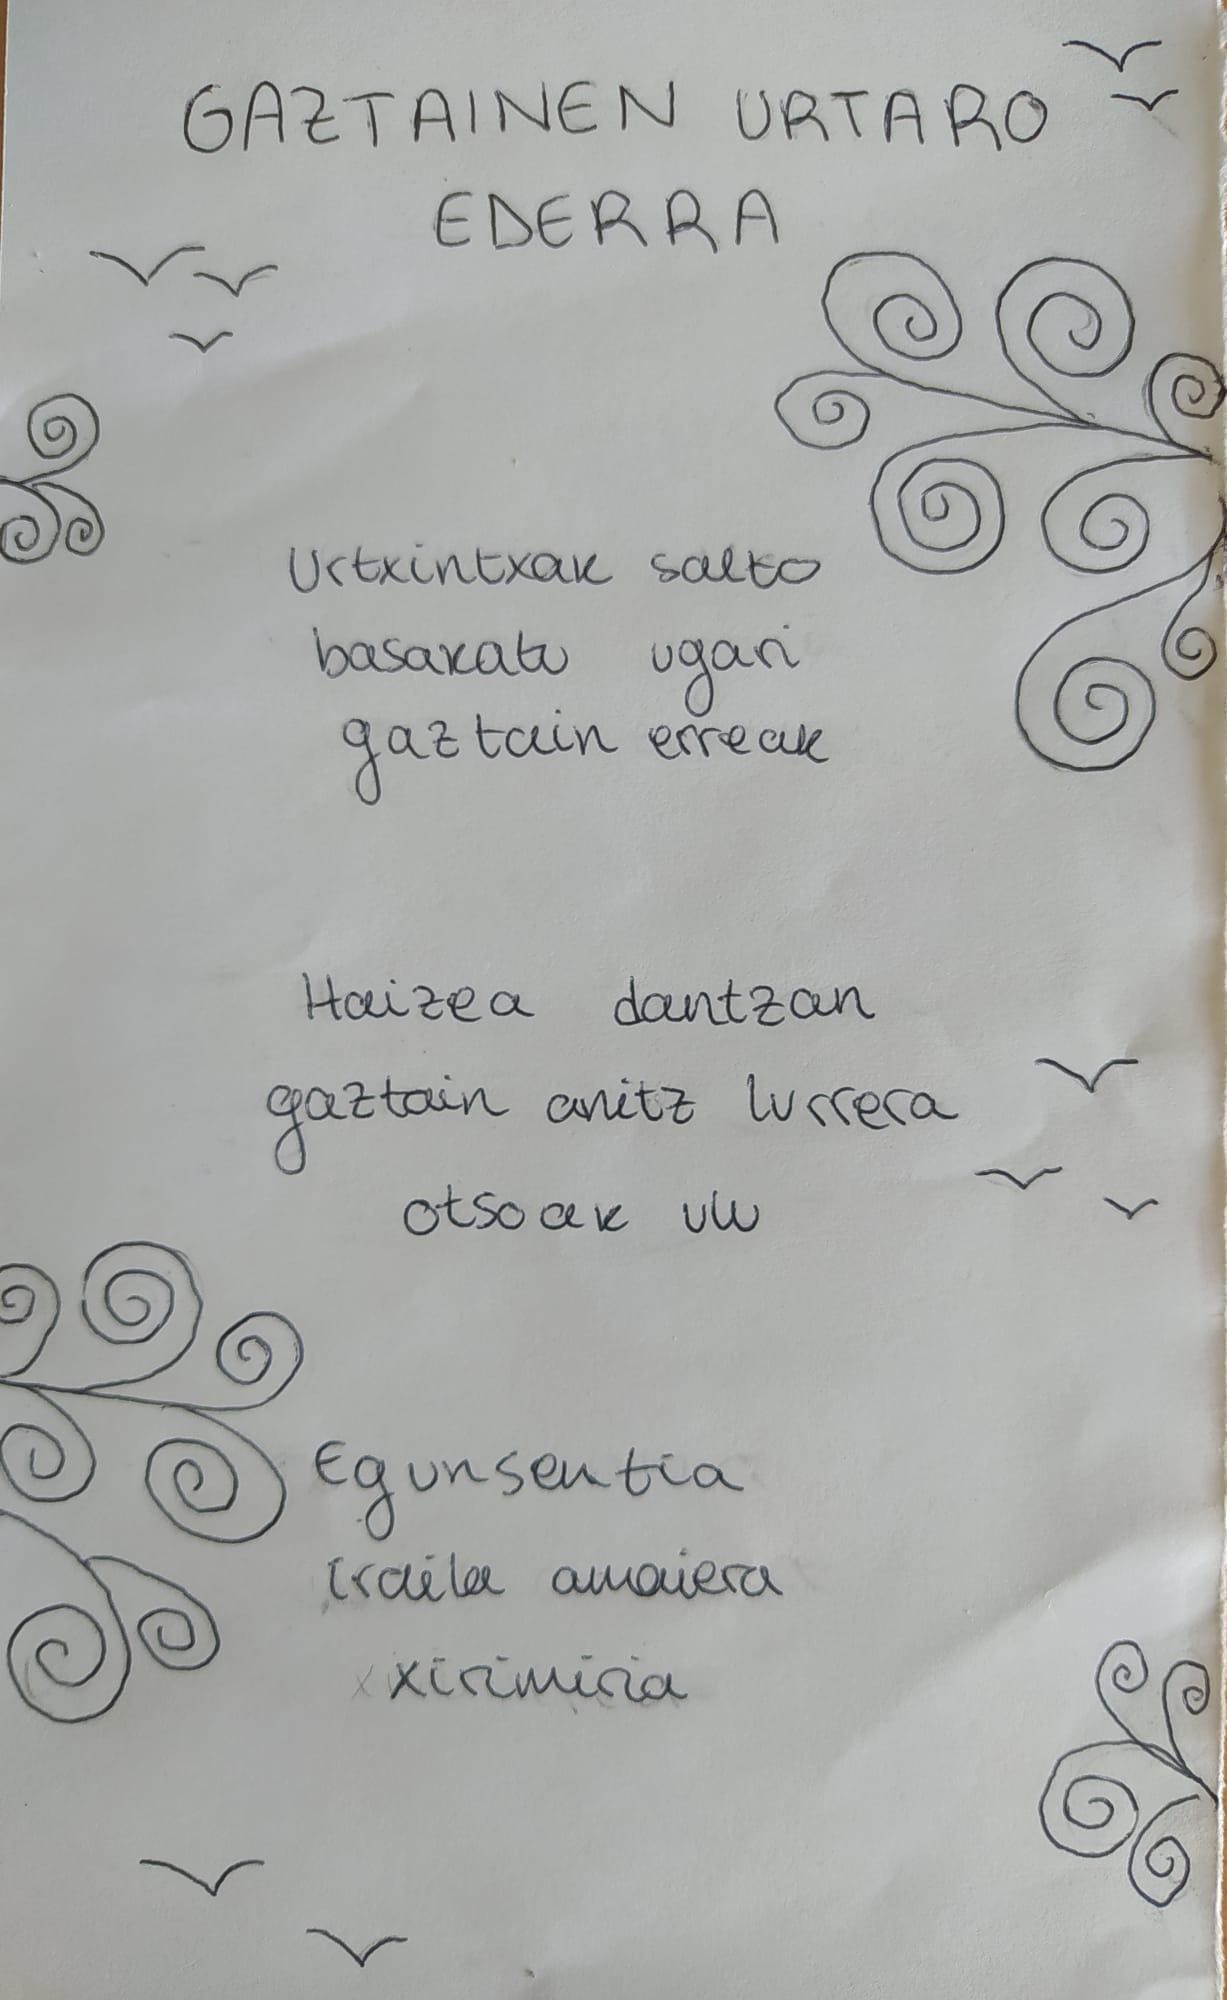 GAZTAINEN URTARO
EDERRA
Urtxintxak salto
basakatu ugari
gaztain erreak
Haizea dantzan
gaztain anitz lurrera
otsoak ulu
Egunsentia
iraila amaiera
xirimiria